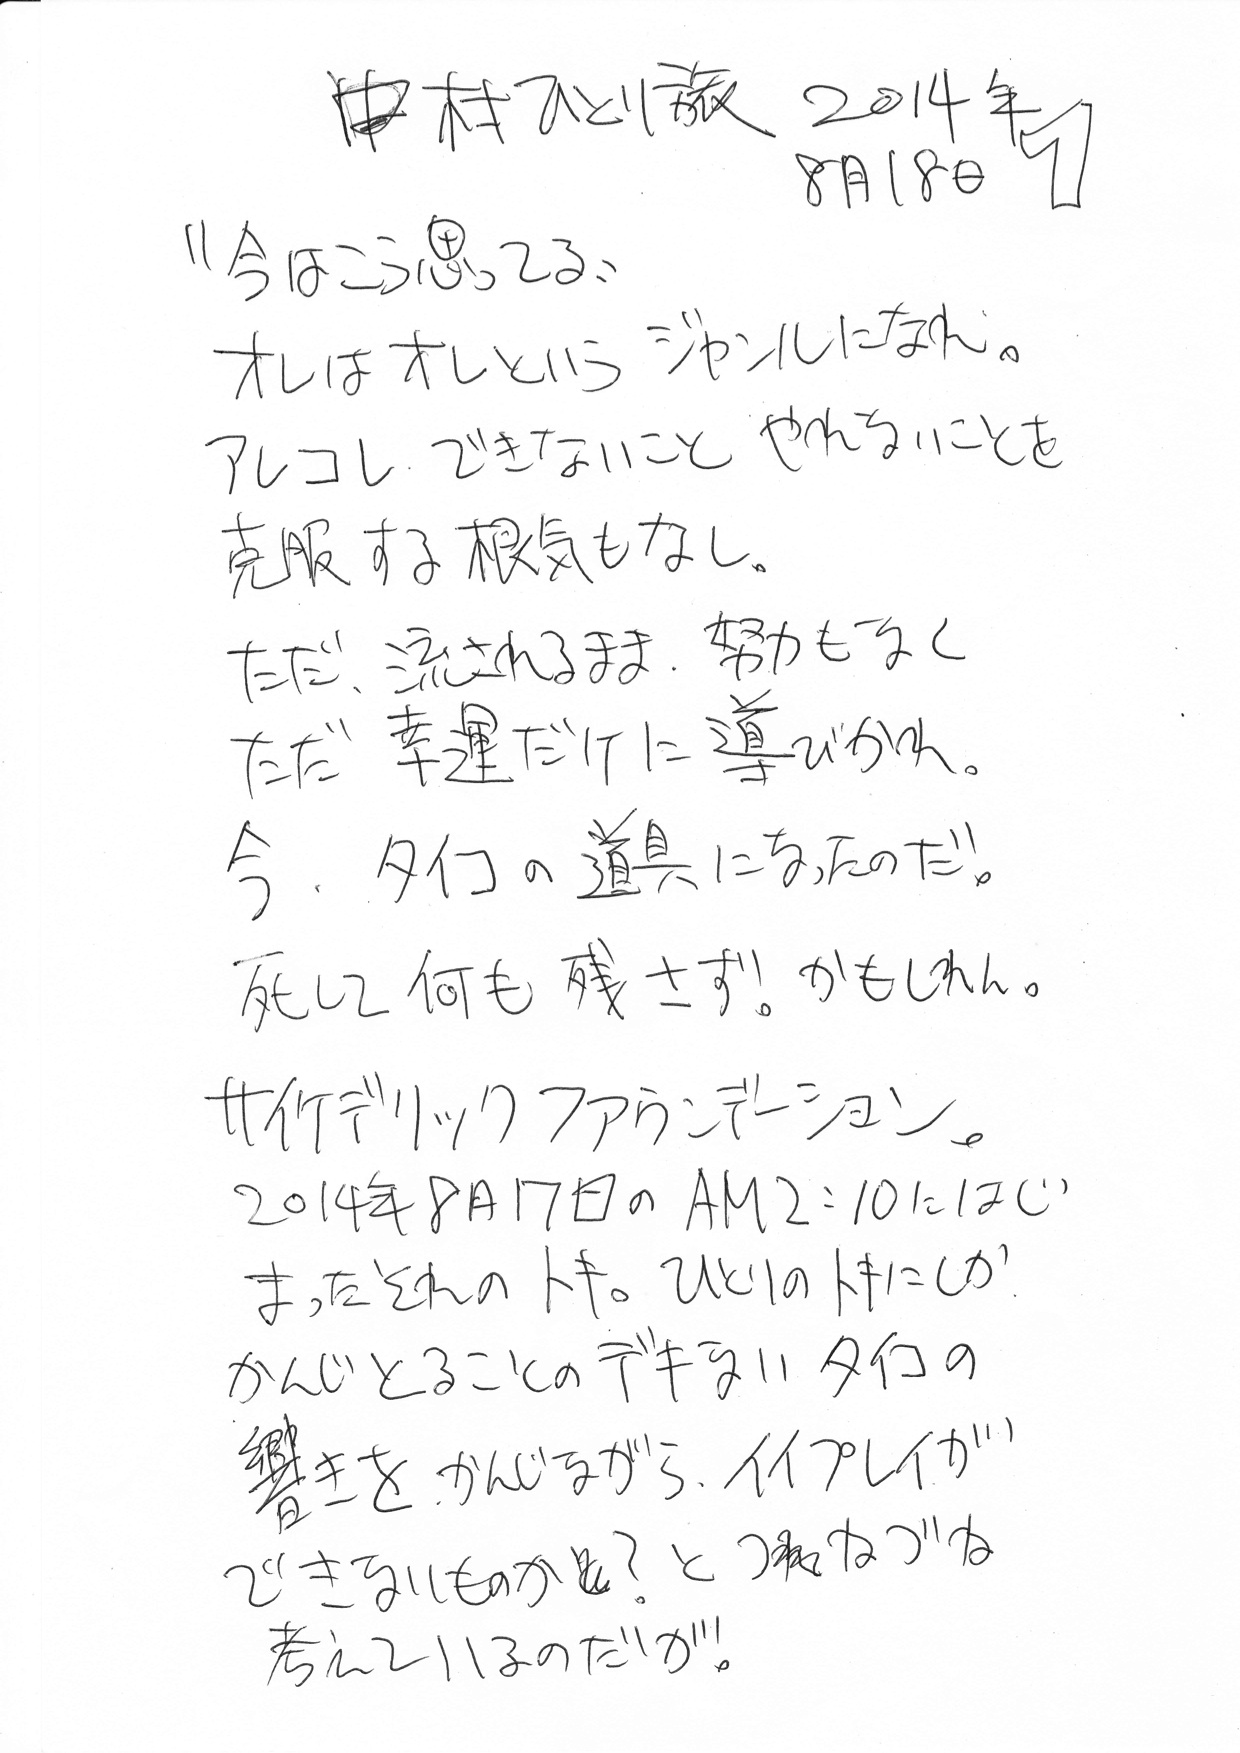 中村ひとり旅 2014年
8月18日 1
"今はこう思ってる、
オレはオレというジャンルになれ。
アレコレ.できないこと やれないことを
克服する根気もなし。
ただ、流されるまま.努力もなく
ただ幸運だけに導びかれ。
今.タイコの道具になったのだ!
死して何も残さず!かもしれん。
サイケデリックファウンデーション。
2014年8月17日のAM2:10にはじ
まったそれのトキ。ひとりのトキにしか
かんじとることのデキないタイコの
響きを.かんじながら、イイプレイが
できないものか?とつねづね
考えているのだが!